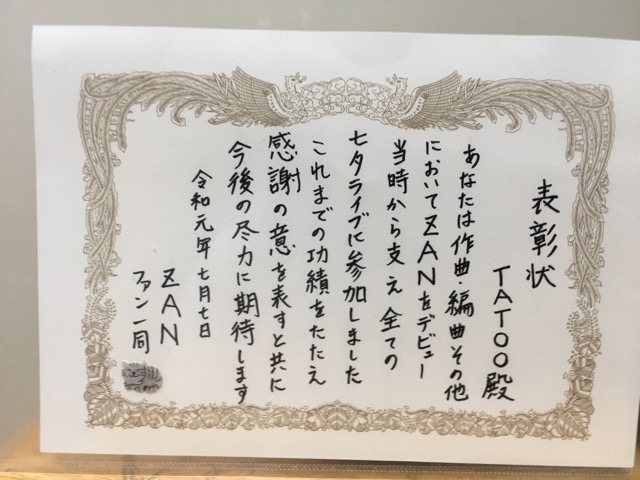 表彰状
TATOO殿
あなたは作曲・編曲その他
においてZANをデビュー
当時から支え全ての
七夕ライブに参加しました
これまでの功績をたたえ
感謝の意を表すと共に
今後の尽力に期待します
令和元年七月七日
ZAN
ファン一同